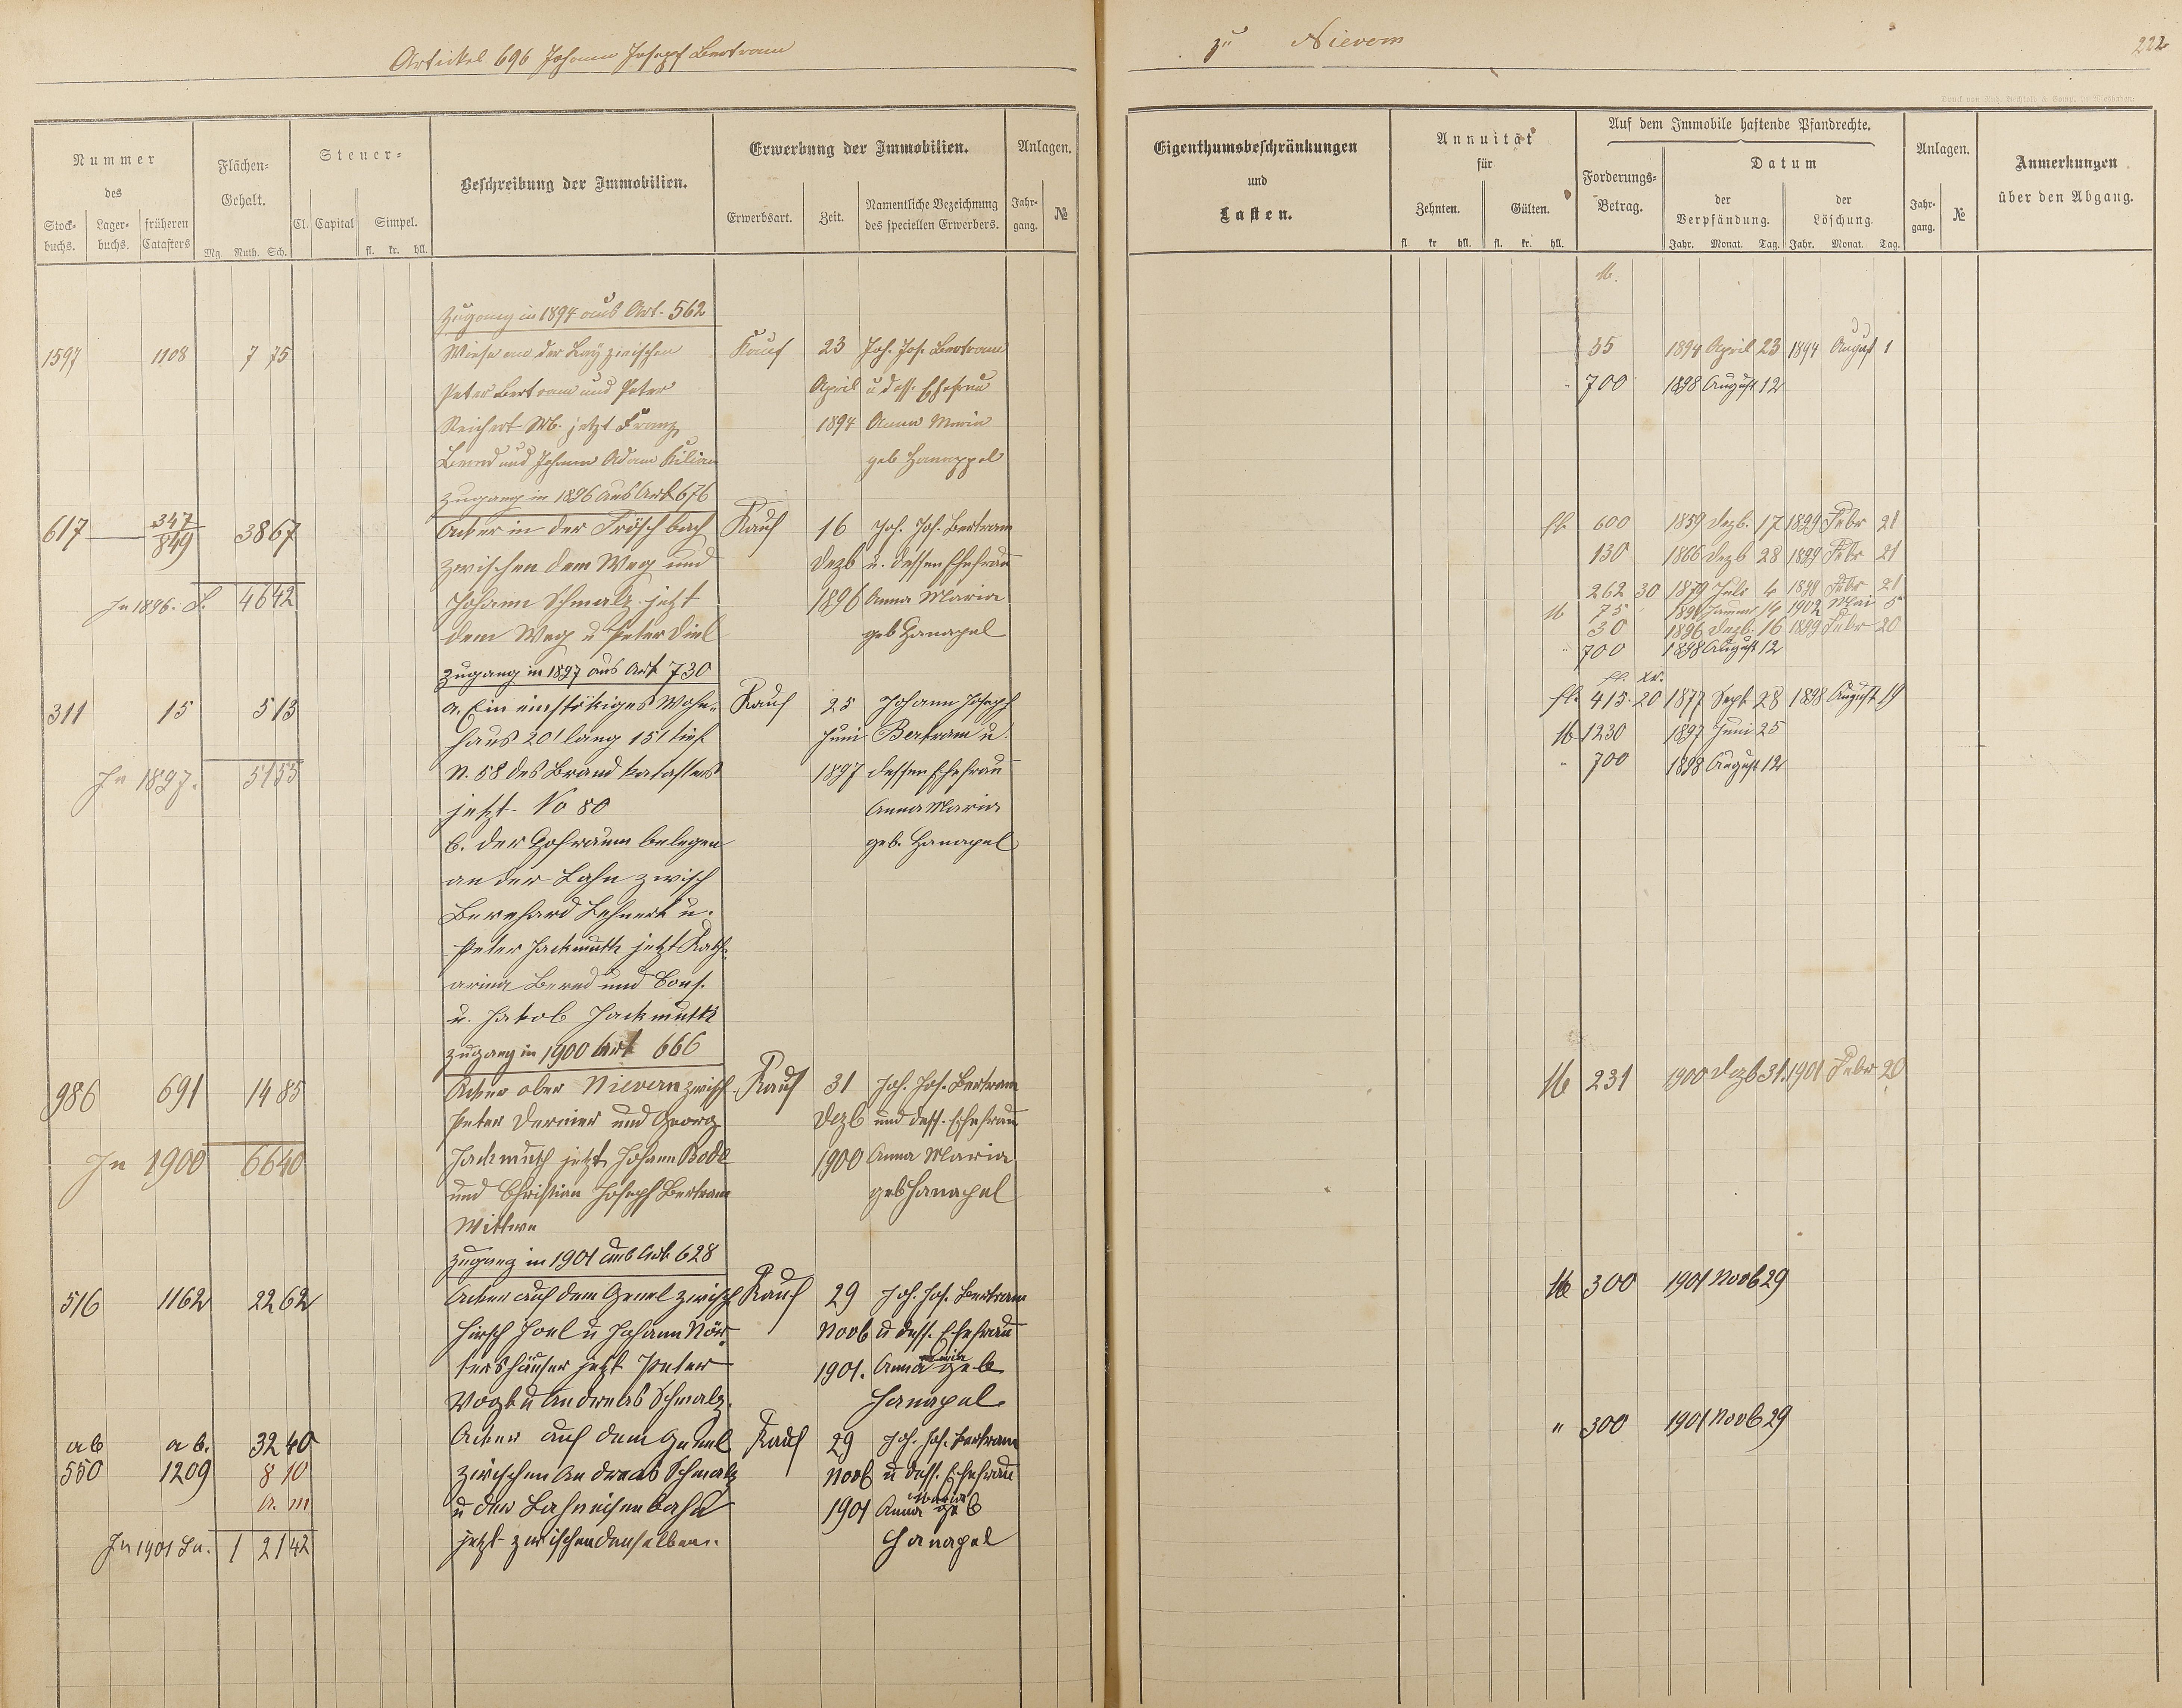 Artickel 696 Johann Josepf Bertram
zu Nievern
222
Nummer
des
Stock-
buchs.
Lager-
buchs.
früheren
Catasters
Flächen-
Gehalt.
Mg. Ruth. Sch.
Steuer-
Cl. Capital Simpel.
fl. kr. hll.
Beschreibung der Immobilien.
Erwerbung der Immobilien.
Erwerbsart.
Zeit.
Namentliche Bezeichnung
des speciellen Erwerbers.
Anlagen.
Jahr-
gang.
№
Zugang in 1894 aus Art. 562
1597 1108 7 75 Wiese an der Lay zwischen Kauf 23 Joh. Jos. Bertram
Peter Bertram und Peter April u dess. Ehefrau
Reichert Wb. jetzt Franz 1894 Anna Maria
Bernd und Johann Adam Kilian geb Hanappel
Zugang in 1896 aus Art 676
617 347/849 38 67 Acker in der Fröschbach Kauf 16 Joh. Jos. Bertram
zwischen dem Weg und Dezb u. dessen Ehefrau
In 1896. S. 46 42 Johann Schmalz jetzt 1896 Anna Maria
dem Weg u Peter Diel geb Hanapel
Zugang in 1897 aus Art 730
311 15 5 13 a. Ein einstökiges Wohn- Kauf 25 Johann Joseph
haus 20' lang 15' tief Juni Bertram u.
In 1897. 51 55 N. 58 des Brand katasters 1897 dessen Ehefrau
jetzt No 80 Anna Maria
b. der Hofraum belegen geb. Hanapel
an der Lahn zwisch
Bernhard Lehnert u.
Peter Jackmuth jetzt Kath-
arina Bernd und Cons.
u. Jakob Jackmuth
Zugang in 1900 Art 666
986 691 14 85 Acker ober Nievern zwisch Kauf 31 Joh. Jos. Bertram
Peter Dernier und Georg Dezb und dess. Ehefrau
In 1900 66 40 Jackmuth jetzt Johann Bode 1900 Anna Maria
und Christian Joseph Bertram geb Hanapel
Wittwe
Zugang in 1901 aus Art. 628
516 1162 22 62 Acker auf dem Grael zwisch Kauf 29 Joh. Jos. Bertram
Hirsch Joel u Johann Nör- Novb u dess. Ehefrau
tershäuser jetzt Peter 1901. Anna Maria geb
Vogt u Andreas Schmalz. Hanapel.
ab ab. 32 40 Acker auf dem Grael Kauf 29 Joh. Jos. Bertram
550 1209 8 10 zwischen Andreas Schmalz Novb u dess. Ehefrau
a. m u der Lahneisenbahn 1901 Anna Maria geb
In 1901 Sa. 1 21 42 jetzt zwischen denselben. Hanapel
Druck von Rud. Bechtold & Comp. in Wiesbaden
Eigenthumsbeschränkungen
und
Lasten.
Annuität
für
Zehnten. Gülten.
fl. kr. hll. fl. kr. hll.
Auf dem Immobile haftende Pfandrechte.
Forderungs-
Betrag.
Datum
der
Verpfändung.
der
Löschung.
Jahr. Monat. Tag. Jahr. Monat. Tag.
Anlagen.
Jahr-
gang.
№
Anmerkungen
über den Abgang.
M.
35 1894 April 23 1894 August 1
" 700 1898 August 12
fl. 600 1859 Dezb. 17 1899 Febr 21
130 1866 Dezb 28 1899 Febr 21
262 30 1879 Juli 4 1899 Febr 21
M 75 Januar 14 1902 Mai 5
30 1896 Dezb. 16 1899 Febr 20
" 700 1898 August 12
fl. kr.
fl. 415. 20 1877 Sept 28 1898 August 19
M 1230 1897 Juni 25
" 700 1898 August 12
M 231 1900 Dezb 31. 1901 Febr 20
M 300 1901 Novb 29
" 300 1901 Novb 29